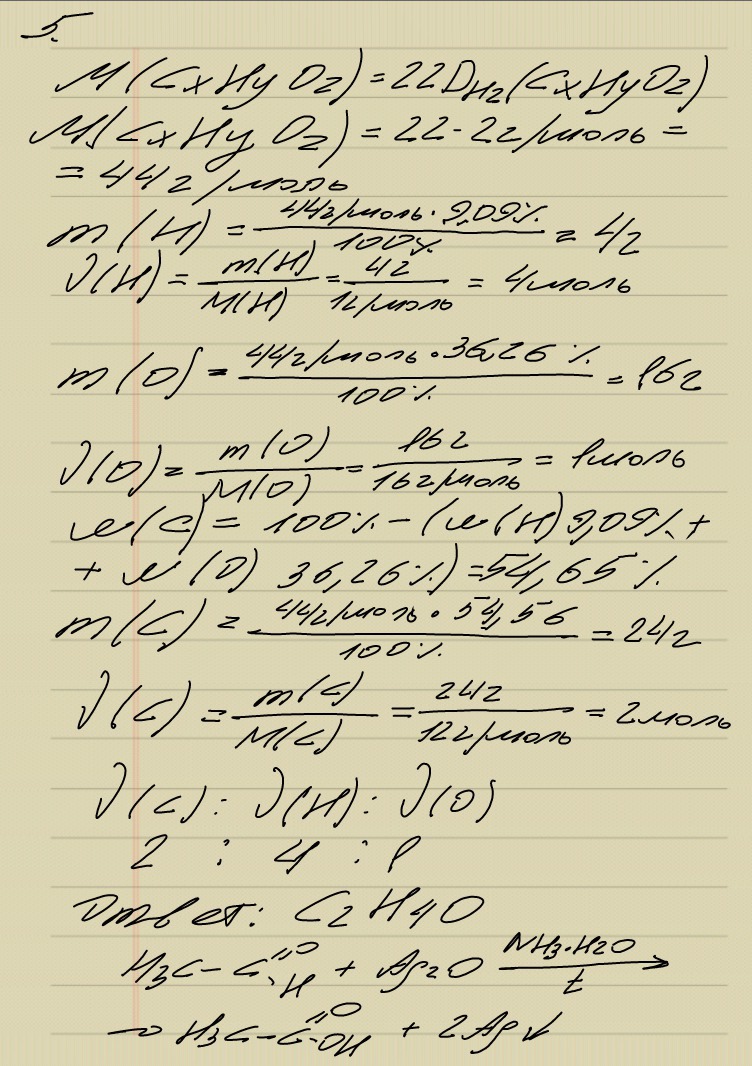 5.
M(CxHyOz) = 22D_H2(CxHyOz)
M(CxHyOz) = 22·2г/моль =
= 44г/моль
m(H) = 44г/моль·9,09% / 100% = 4г
ν(H) = m(H) / M(H) = 4г / 1г/моль = 4моль
m(O) = 44г/моль·36,26% / 100% = 16г
ν(O) = m(O) / M(O) = 16г / 16г/моль = 1моль
w(C) = 100% - (w(H) 9,09% +
+ w(O) 36,26%) = 54,65%
m(C) = 44г/моль·54,56 / 100% = 24г
ν(C) = m(C) / M(C) = 24г / 12г/моль = 2моль
ν(C) : ν(H) : ν(O)
2 : 4 : 1
Ответ: C2H4O
H3C-C=O-H + Ag2O NH3·H2O / t →
→ H3C-C=O-OH + 2Ag↓